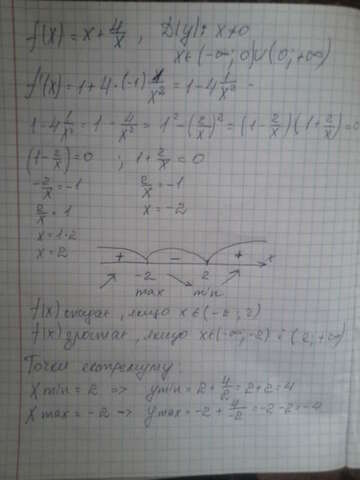 f(x) = x + 4/x , D(y): x≠0
x∈(-∞; 0)∪(0; +∞)
f'(x) = 1 + 4·(-1) 1/x² = 1 - 4 1/x² =
1 - 4 1/x² = 1 - 4/x² = 1² - (2/x)² = (1 - 2/x)(1 + 2/x) = 0
(1 - 2/x) = 0 ; 1 + 2/x = 0
-2/x = -1 2/x = -1
2/x = 1 x = -2
x = 1·2
x = 2
+ - + x
-2 2
max min
f(x) спадає, якщо x∈(-2; 2)
f(x) зростає, якщо x∈(-∞; -2) і (2; +∞)
Точки екстремуму:
x min = 2 => y min = 2 + 4/2 = 2 + 2 = 4
x max = -2 => y max = -2 + 4/-2 = -2 - 2 = -4